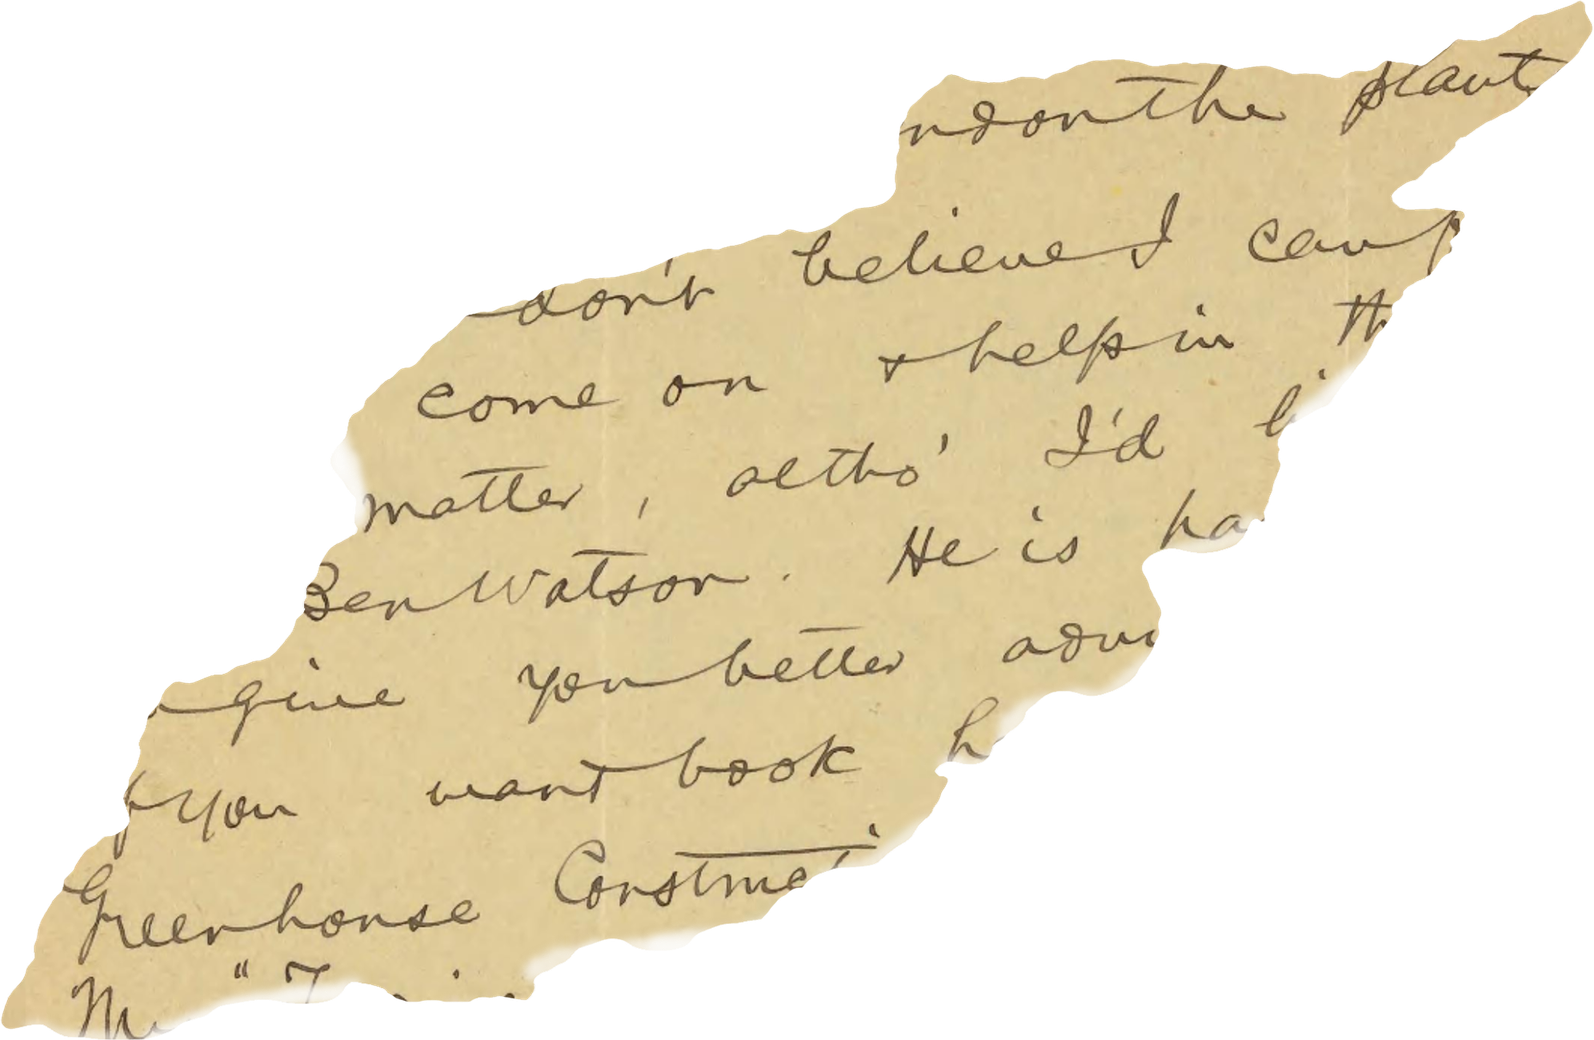 on the plant
don't believe I can
come on & help in
matter, altho' I'd
Ben Watson. He is
give you better
you want book
Greenhouse